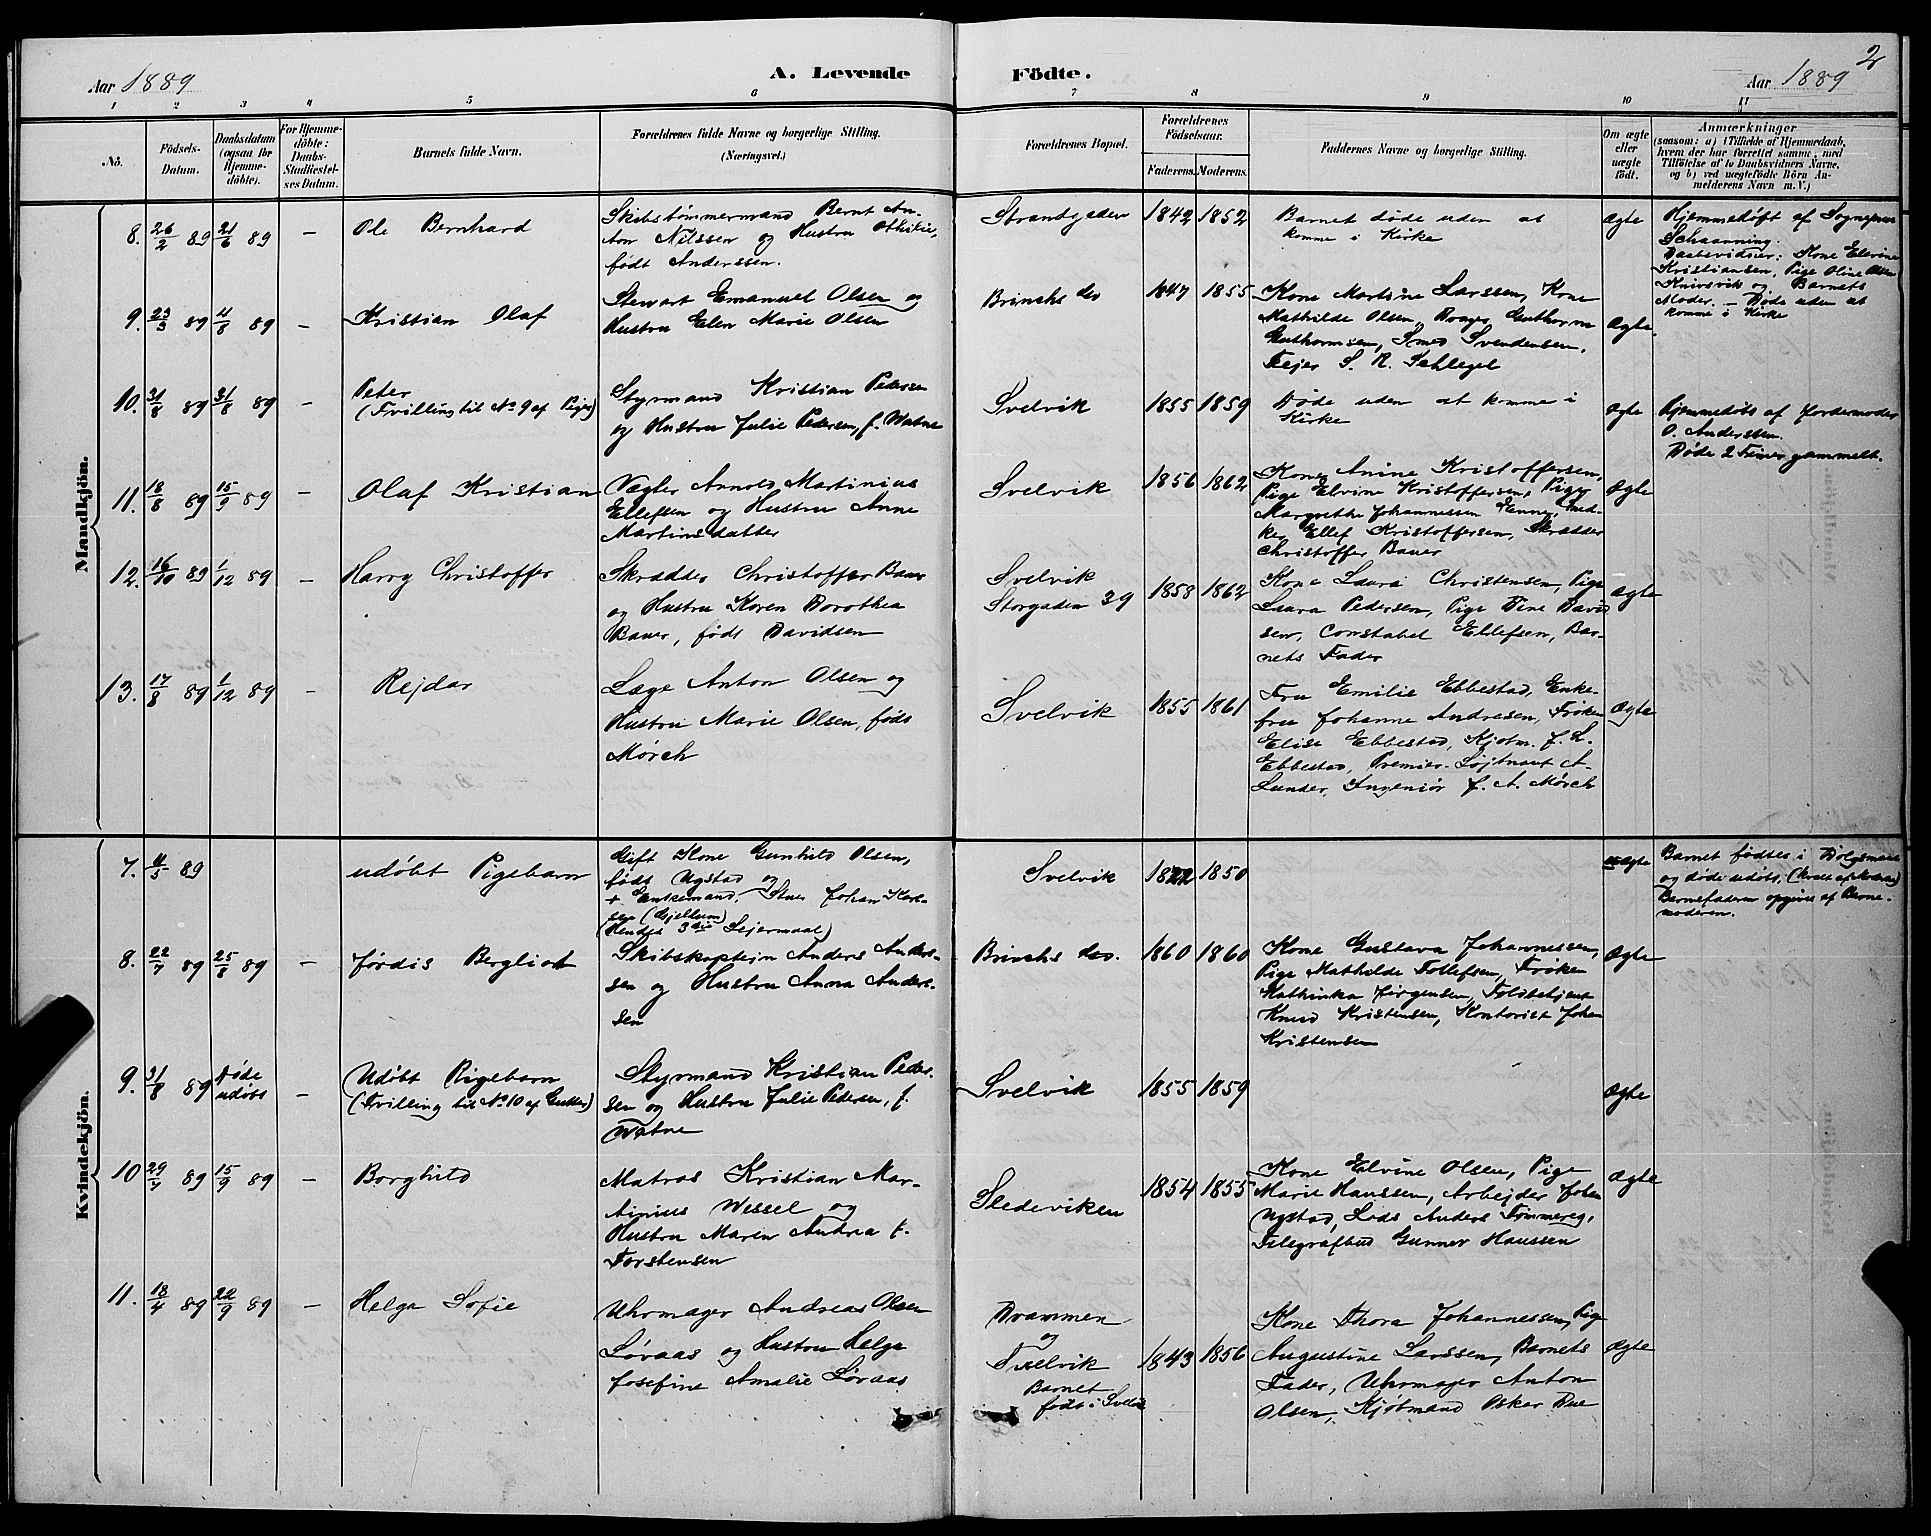 Aar 1889
A. Levende Födte.
Aar 1889
2
1 2 3 4 5 6 7 8 9 10 11
No.
Födsels-Datum.
Daabsdatum (ogsaa for Hjemme-döbte).
For Hjemme-döbte: Daabs-Stadfæstel-ses Datum.
Barnets fulde Navn.
Forældrenes fulde Navne og borgerlige Stilling. (Næringsvei.)
Forældrenes Bopæl.
Forældrenes Födselsaar.
Faderens. Moderens.
Faddernes Navne og borgerlige Stilling.
Om ægte eller uægte födt.
Anmærkninger
(saasom: a) i Tilfælde af Hjemmedaab, hvem der har forrettet samme, med Tilföielse af to Daabsvidners Navne, og b) ved uægtefödte Börn An-melderens Navn m. V.)
Mandkjön.
8. 26/2 89 21/6 89 — Ole Bernhard
Skibstømmermand Bernt An-
ton Nilssen og Hustru Othilie,
født Anderssen.
Strandgaden 1842 1852
Barnet døde uden at
komme i Kirke
Ægte
Hjemmedøpt af Sognepr.
Schaanning.
Daabsvidner: Kone Elevine
Kristiansen, Pige Oline Olsen
Knivsvik og Barnets
Moder. — Døde uden at
komme i Kirke
9. 23/3 89 4/8 89 — Kristian Olaf
Stewart Emanuel Olsen og
Hustru Elen Marie Olsen
Brinchs 1847 1855
Kone Martine Larssen, Kone
Mathilde Olsen, Guthorm
Guthormsen, Smed Svendensen,
Fejer S. R. Schlegel
Ægte
10. 31/8 89 31/8 89 — Peter
(Tvilling til No 9 af Piger)
Styrmand Kristian Pedersen
og Hustru Julie Pedersen, f. Watne
Svelvik 1855 1859
Døde uden at komme i
Kirke
Ægte
Hjemmedøbt af Jordemoder
O. Anderssen.
Døde 2 Timer gammelt.
11. 18/8 89 15/9 89 — Olaf Kristian
Vægter Arnold Martinius
Ellefsen og Hustru Anne
Martinsdatter
Svelvik 1856 1862
Kone Anine Kristoffersen,
Pige Elvine Kristoffersen, Pige
Margrethe Johannessen,
Ellef Kristoffersen, Skrædder
Christoffer Bauer
Ægte
12. 16/10 89 1/12 89 — Harry Christoffer
Skrædder Christoffer Bauer
og Hustru Karen Dorothea
Bauer, født Davidsen
Svelvik
Storgaden 39 1858 1862
Kone Laura Christensen, Pige
Laura Pedersen, Pige Tine David
sen, Constabel Ellefsen, Bar-
nets Fader
Ægte
13. 17/8 89 1/12 89 — Rejdar
Læge Anton Olsen og
Hustru Marie Olsen, født
Mørch
Svelvik 1855 1861
Fru Emilie Ebbestad, Enke-
fru Johanne Andresen, Frøken
Elise Ebbestad, Kjøbm. J. L.
Ebbestad, Premier-Løjtnant A.
Lunder, Ingeniør J. A. Mørch
Ægte
Kvindekjön.
7. 4/5 89 udøbt Pigebarn
Gift Kone Gunhild Olsen,
født Ugstad og
+ Enkemand, Johan Karl-
sen (Gjellum)
(Hendes 3die Lejermaal)
Svelvik 1822 1850
uægte
Barnet fødtes i Dølgsmaal
og døde udøbt,
Barnefaderen opgives af Barne-
moderen.
8. 22/7 89 25/8 89 — Jørdis Bergliot
Skibskaptejn Anders Anders-
sen og Hustru Anna Anders-
sen
Brinchs 1860 1860
Kone Gustava Johannessen,
Pige Mathilde Tollefsen, Frøken
Kathinka Jørgensen, Toldbetjent
Knud Kristensen, Kontorist Johan
Kristensen
Ægte
9. 31/8 89 Døde
udøbt — Udøbt Pigebarn
(Tvilling til No 10 af Gutter)
Styrmand Kristian Peder-
sen og Hustru Julie Pedersen, f.
Watne
Svelvik 1855 1859
Ægte
10 29/7 89 15/9 89 — Borghild
Matros Kristian Mar-
tinius Wessel og
Hustru Maren Andrea f.
Torstensen
Sledeviken 1854 1855
Kone Elvine Olsen, Pige
Marie Hanssen, Arbejder Johan
Ugstad, Lods Anders Tømmereg,
Telegrafbud Gunner Hanssen
Ægte
11. 18/4 89 22/9 89 — Helga Sofie
Uhrmager Andreas Olsen
Løvaas og Hustru Helga
Josefine Amalie Løvaas
Drammen
og
Svelvik
Barnet
født i Svelvik
1843 1856
Kone Thora Johannessen, Pige
Augustine Larssen, Barnets
Fader, Uhrmager Anton
Olsen, Kjøbmand Oskar Due
Ægte